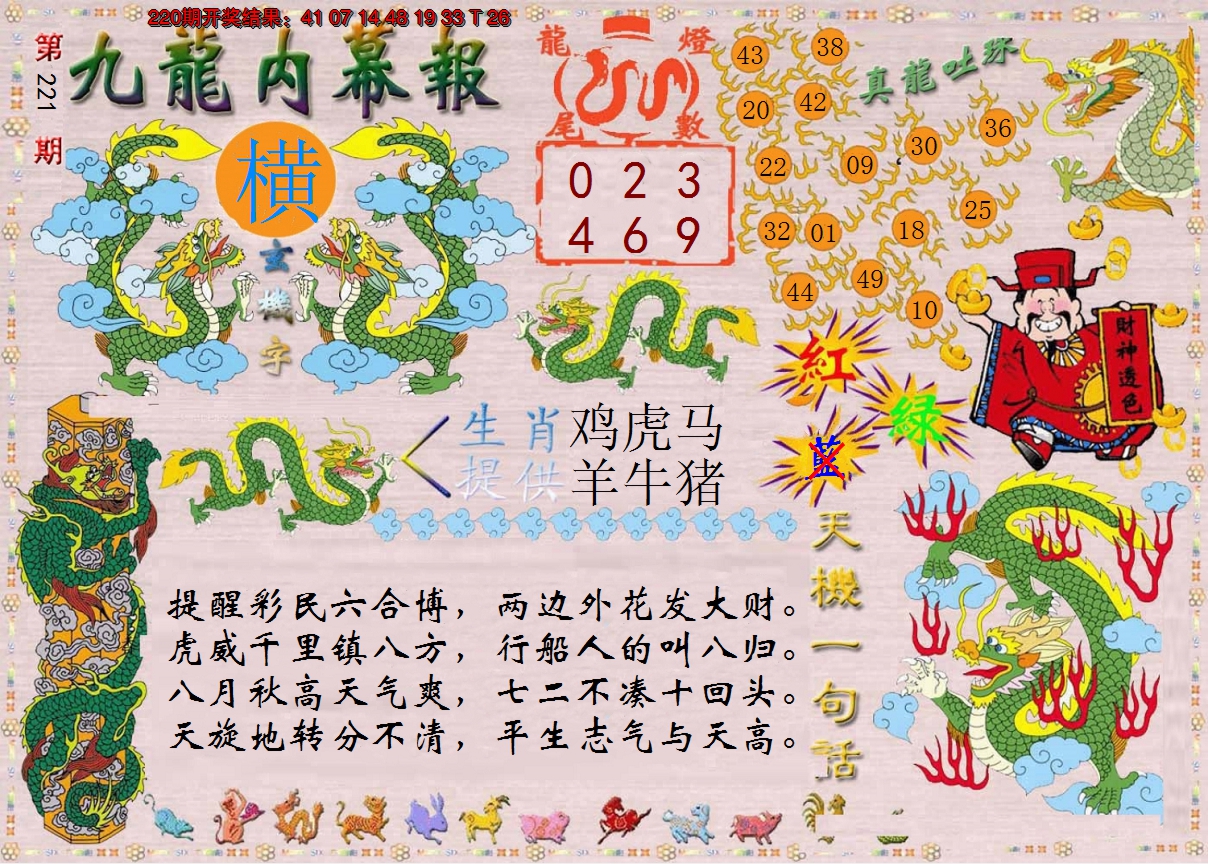 220期开奖结果：41 07 14 48 19 33 T 26
第221期
九龍内幕報
横
玄機字
龍燈
尾數
0 2 3
4 6 9
真龍吐珠
43 38
20 42
36
30
22 09
25
32 01 18
49
44
10
財神透色
紅
綠
藍
生肖 鸡虎马
提供 羊牛猪
天機一句话
提醒彩民六合博，两边外花发大财。
虎威千里镇八方，行船人的叫八归。
八月秋高天气爽，七二不凑十回头。
天旋地转分不清，平生志气与天高。